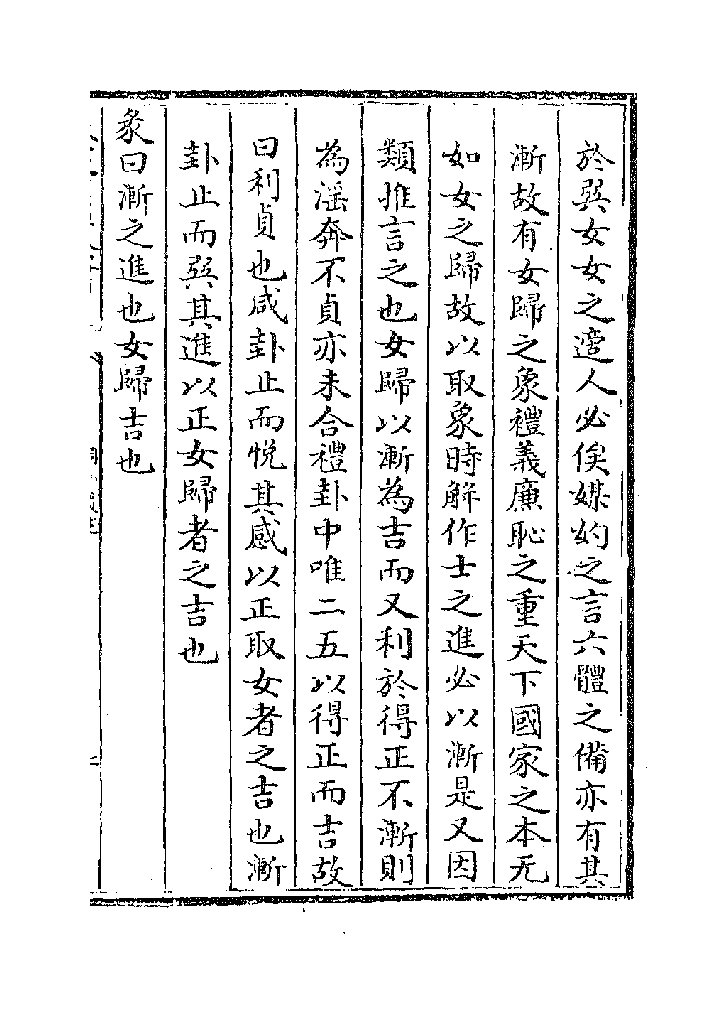 於巽女女之適人必俟媒妁之言六體之備亦有其
漸故有女歸之象禮義廉恥之重天下國家之本无
如女之歸故以取象時解作士之進必以漸是又因
類推言之也女歸以漸為吉而又利於得正不漸則
為滛奔不貞亦未合禮卦中唯二五以得正而吉故
曰利貞也咸卦止而悅其感以正取女者之吉也漸
卦止而巽其進以正女歸者之吉也
彖曰漸之進也女歸吉也